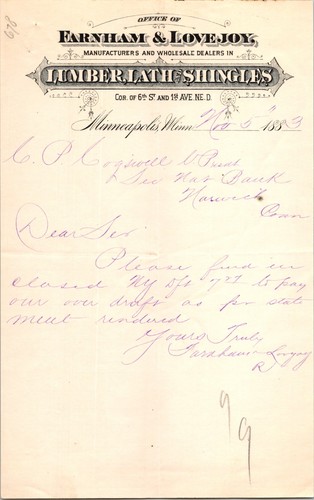 678
OFFICE OF
FARNHAM & LOVEJOY,
MANUFACTURERS AND WHOLESALE DEALERS IN
LUMBER, LATH AND SHINGLES
COR. OF 6TH ST AND 1ST AVE. NE. D.
Minneapolis, Minn. Nov 5" 1883
C. P. Cogswell V Prest
Sec Nat Bank
Norwich
Conn
Dear Sir
Please find in
closed NY Dft to pay
our over draft as pr state
ment rendered
Yours Truly
Farnham & Lovejoy
R
99